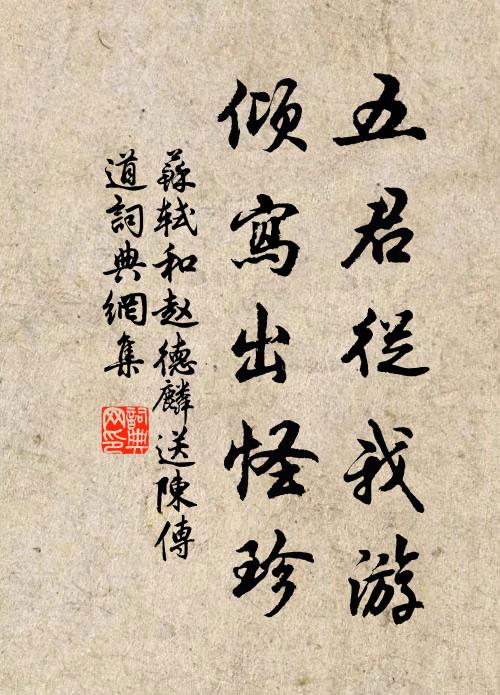 五君從我游
傾寫出怪珍
蘇軾和赵德麟送陳傳
道詞典網集
詞典网印